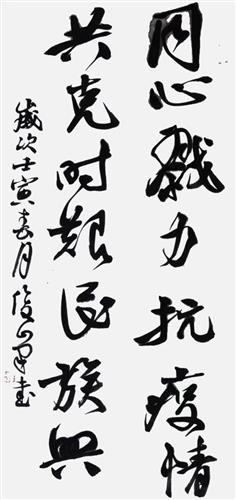 同心戮力抗疫情
共克时艰民族兴
岁次壬寅春月俊峰书